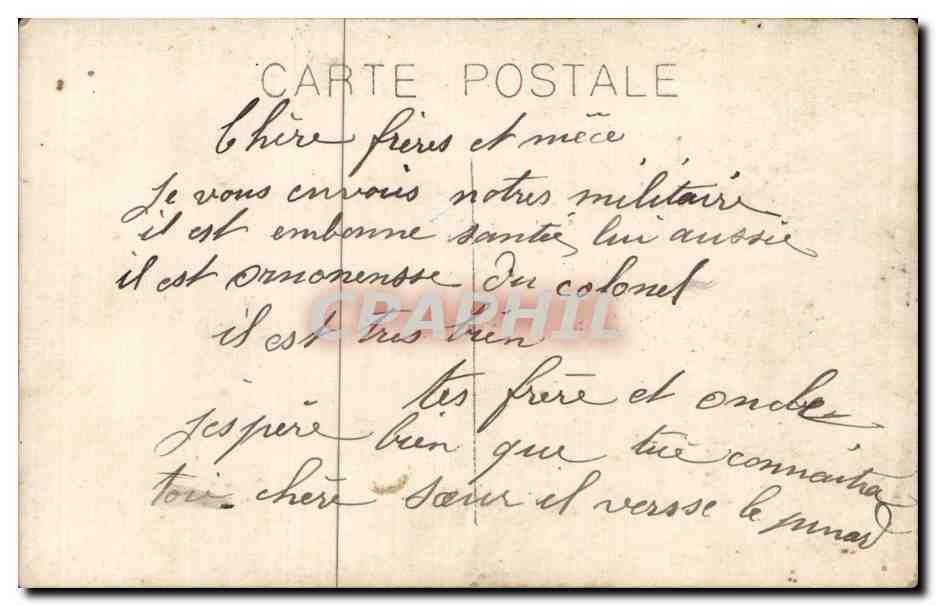 CARTE POSTALE
Chère frères et mèce
Je vous envois notres militaire
il est embonne santié lui aussie
il est ornonensse du colonel
CPAPHIL
il est tres bien
tes frère et oncle
Jespère bien que tue connaitra
toie chère sœur il versse le pinard